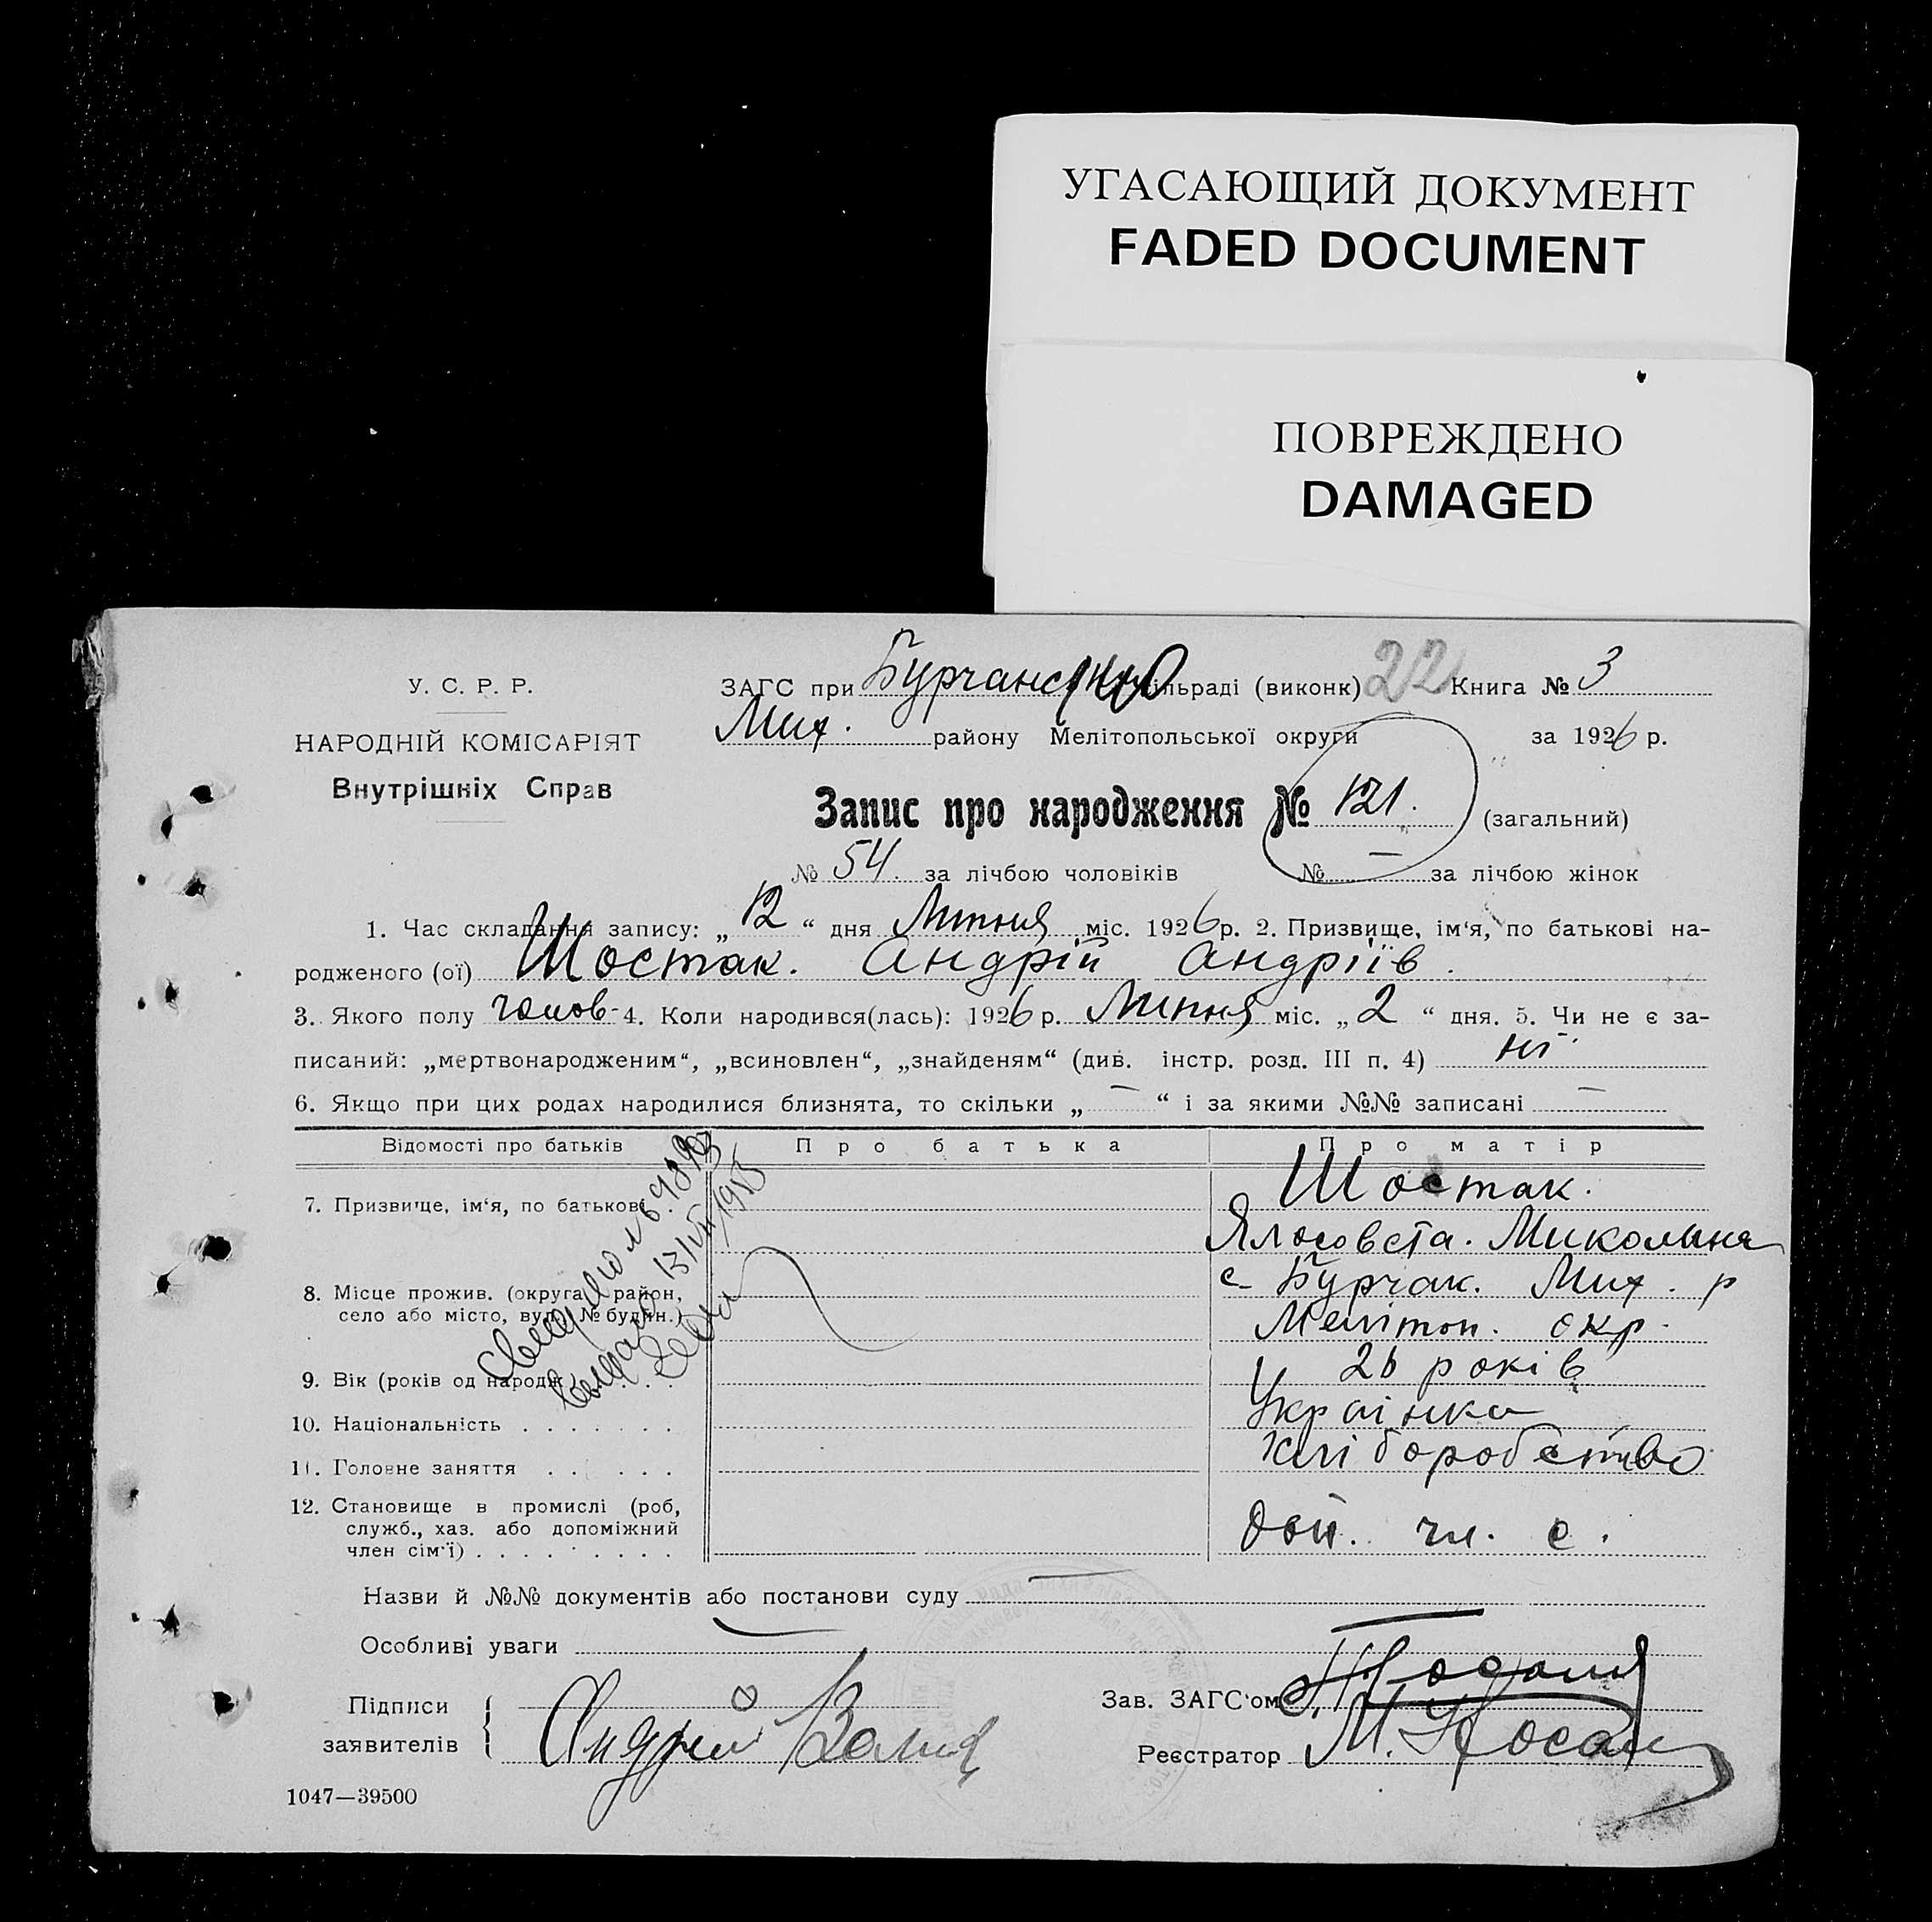 УГАСАЮЩИЙ ДОКУМЕНТ
FADED DOCUMENT
ПОВРЕЖДЕНО
DAMAGED
У. С. Р. Р.
НАРОДНІЙ КОМІСАРІЯТ
Внутрішніх Справ
ЗАГС при Бурчанській сільраді (виконк) 22 Книга № 3
Мих. району Мелітопольської округи за 1926 р.
Запис про народження № 121. (загальний)
№ 54. за лічбою чоловіків № — за лічбою жінок
1. Час складання запису: „ 12 “ дня Липня міс. 1926 р. 2. Призвище, ім‘я, по батькові на-
родженого (ої) Шостак. Андрій Андріїв.
3. Якого полу чолов- 4. Коли народився(лась): 1926 р. Липня міс. „ 2 “ дня. 5. Чи не є за-
писаний: „мертвонародженим“, „всиновлен“, „знайденям“ (див. інстр. розд. III п. 4) ні
6. Якщо при цих родах народилися близнята, то скільки „ — “ і за якими №№ записані —
Відомості про батьків Про батька Про матір
7. Призвище, ім‘я, по батькові Шостак.
Микольна
8. Місце прожив. (округа, район, с- Бурчак. Мих. р
село або місто, вул., № будин.) Мелітоп. окр.
9. Вік (років од народж.) 26 років
10. Національність . . . . . . . Українка
11. Головне заняття . . . . . . Хліборобство
12. Становище в промислі (роб,
служб., хаз. або допоміжний
член сім‘ї) . . . . . . . . . доп. чл. с.
Назви й №№ документів або постанови суду —
Особливі уваги —
Підписи
заявителів Андрей
Зав. ЗАГС‘ом
Реєстратор М. Носа
1047—39500